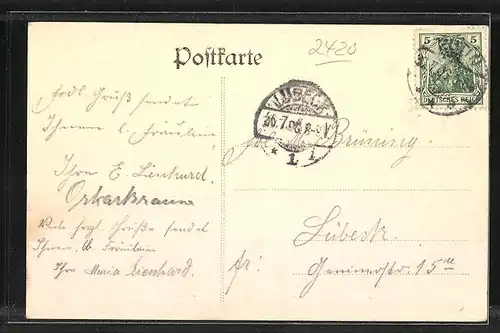 Postkarte
2420
5 5
DEUTSCHES REICH
LÜBECK
26.7.06. 8-9V
* 1. i
Frdl. Gruß sendet
Ihnen l. Fräulein
Ihre E. Lienhard.
Oskar Braun
Viele herzl. Grüße sendet
Ihnen, lb. Fräulein
Ihre Maria Lienhard.
Brüning
Lübeck.
fr:
15